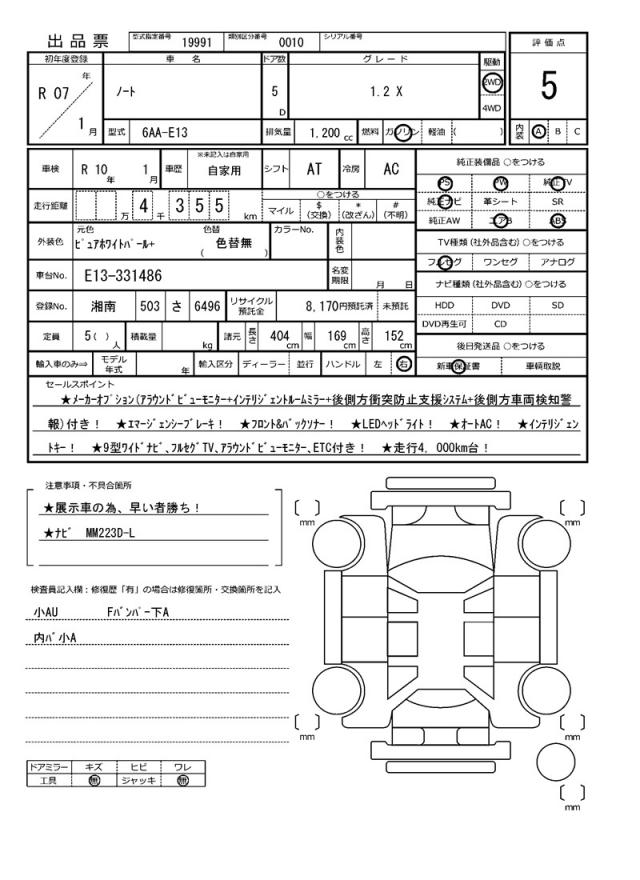 出品票 型式指定番号 19991 類別区分番号 0010 シリアル番号
評価点
初年度登録 車名 ドア数 グレード 駆動
R 07 年 ノート 5 D 1.2 X 2WD 5
1 月 4WD
型式 6AA-E13 排気量 1,200 cc 燃料 ガソリン 軽油 ( ) 内装 A B C
車検 R 10 年 1 月 車歴 ※未記入は自家用 自家用 シフト AT 冷房 AC 純正装備品 ○をつける
PS PW 純正TV
走行距離 万 4 千 355 km ○をつける
マイル $(交換) *(改ざん) #(不明)
純正ナビ 革シート SR
純正AW エアB ABS
外装色 元色 ピュアホワイトパール+ 色替 ( 色替無 ) カラーNo. 内装色
TV種類 (社外品含む) ○をつける
フルセグ ワンセグ アナログ
車台No. E13-331486 名変期限 月 日
ナビ種類 (社外品含む) ○をつける
登録No. 湘南 503 さ 6496 リサイクル預託金 8,170円預託済 未預託
HDD DVD SD
DVD再生可 CD
定員 5 ( ) 人 積載量 kg 諸元 長さ 404 cm 幅 169 cm 高さ 152 cm
後日発送品 ○をつける
輸入車のみ⇒ モデル年式 年 輸入区分 ディーラー 並行 ハンドル 左 右
新車保証書 車輌取説
セールスポイント
★メーカーオプション(アラウンドビューモニター+インテリジェントルームミラー+後側方衝突防止支援システム+後側方車両検知警
報)付き！ ★エマージェンシーブレーキ！ ★フロント&バックソナー！ ★LEDヘッドライト！ ★オートAC！ ★インテリジェン
トキー！ ★9型ワイドナビ、フルセグTV、アラウンドビューモニター、ETC付き！ ★走行4,000km台！
注意事項・不具合箇所
★展示車の為、早い者勝ち！
★ナビ MM223D-L
検査員記入欄：修復歴「有」の場合は修復箇所・交換箇所を記入
小AU Fバンパー下A
内パ小A
ドアミラー キズ ヒビ ワレ
工具 無 ジャッキ 無
〔 〕 mm
〔 〕 mm
〔 〕 mm
〔 〕 mm
〔 〕 mm